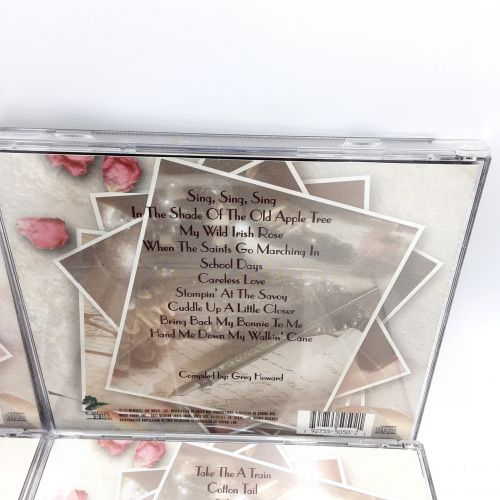 Sing, Sing, Sing
In The Shade Of The Old Apple Tree
My Wild Irish Rose
When The Saints Go Marching In
School Days
Careless Love
Stompin' At The Savoy
Cuddle Up A Little Closer
Bring Back My Bonnie To Me
Hand Me Down My Walkin' Cane
Compiled by: Greg Howard
7 92755-5050-2
Take The A Train
Cotton Tail